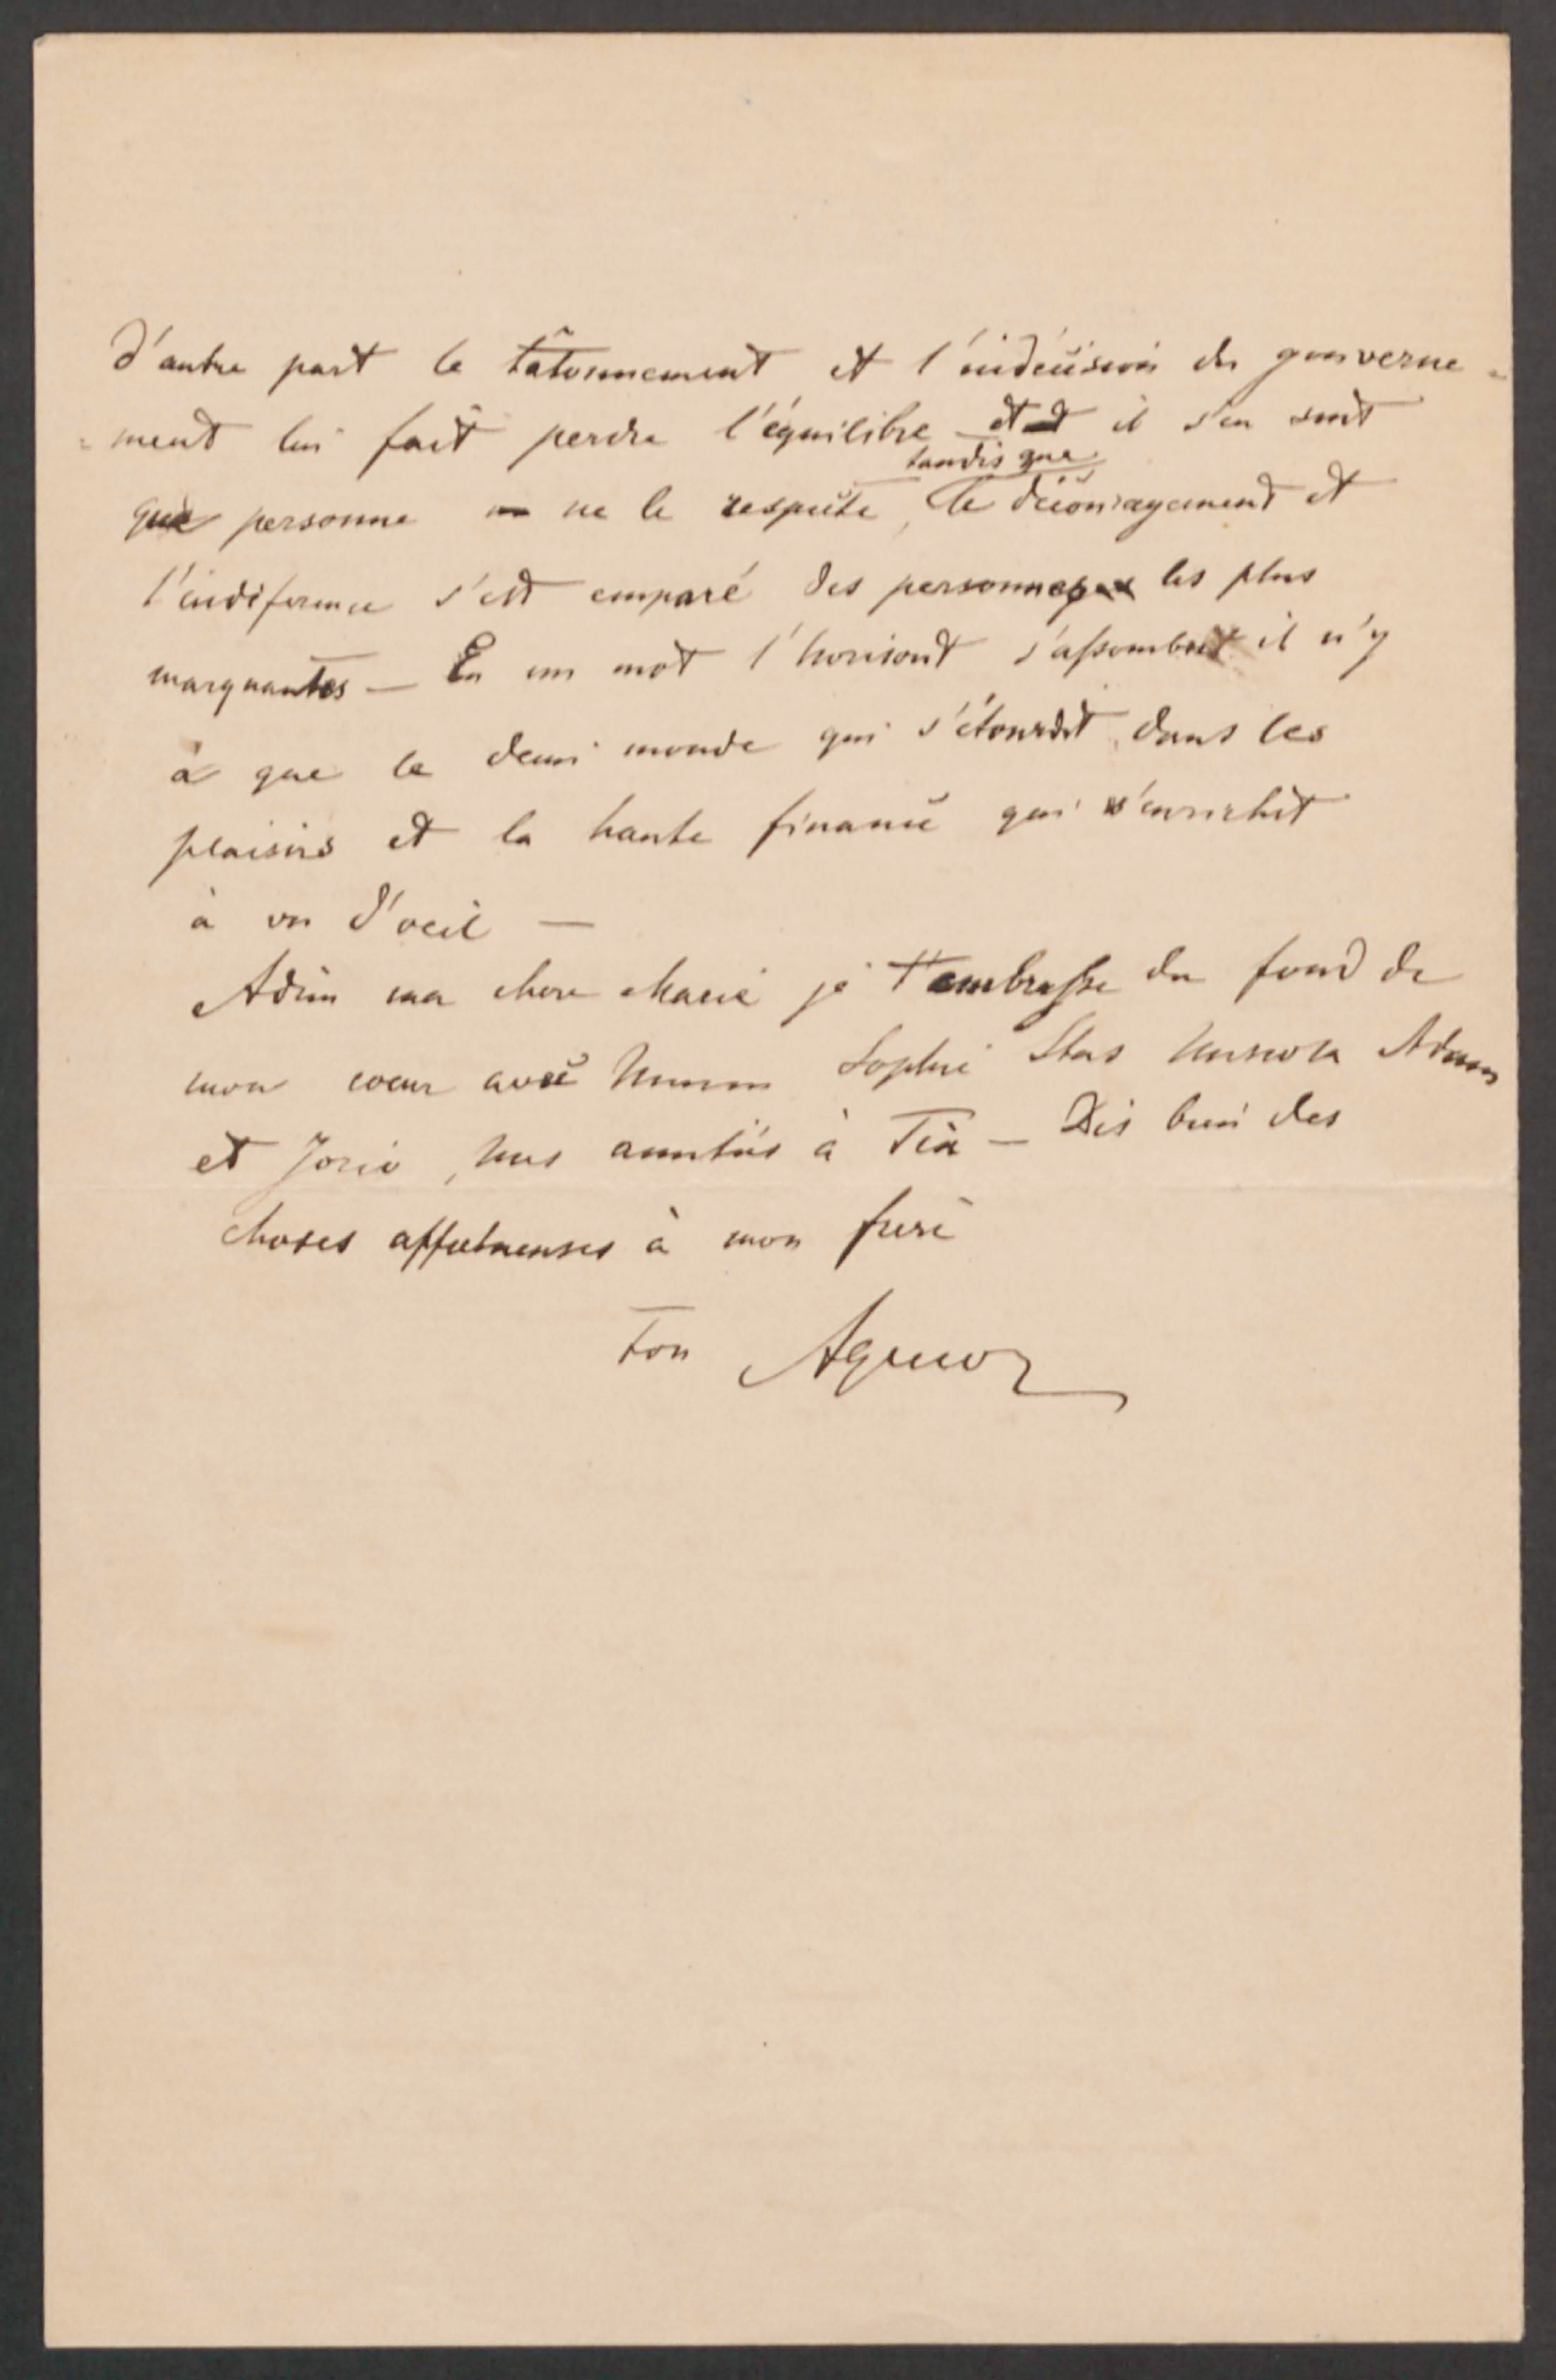 d'autre part le tâtonnement et l'indécision du gouverne=
=ment lui fait perdre l'équilibre et il s'en suit
que personne ne le respecte, tandis que le découragement et
l'indiference s'est emparé des personnages les plus
marquantes — En un mot l'horisont s'assombrit il n'y
à que le demi monde qui s'étourdit dans les
plaisirs et la haute finance qui s'enrichit
à vu d'oeil —
Adieu ma chere Marie je t'embrasse du fond de
mon coeur avec Sophie Stas Adam
et Jozio, amitiés à Téa — Dis bien des
choses affectueuses à mon frere
Ton Agenor